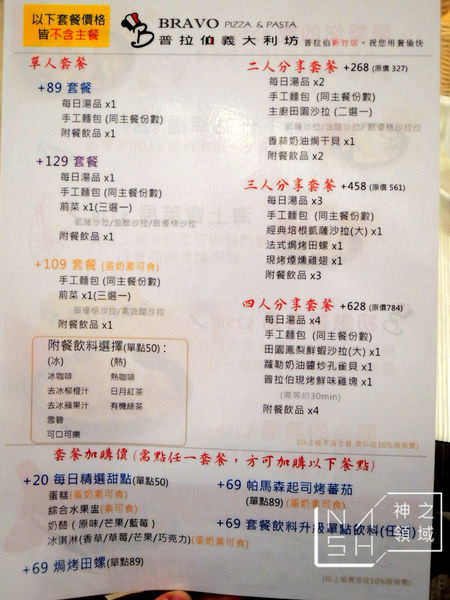 以下套餐價格
皆不含主餐
BRAVO PIZZA & PASTA
普拉伯義大利坊 普拉伯新竹店。祝您用餐愉快
單人套餐
+89 套餐
每日湯品 x1
手工麵包 (同主餐份數)
附餐飲品 x1
+129 套餐
每日湯品 x1
手工麵包 (同主餐份數)
前菜 x1(三選一)
凱薩沙拉/油醋沙拉/甜優格沙拉
附餐飲品 x1
+109 套餐 (蛋奶素可食)
手工麵包 (同主餐份數)
前菜 x1(三選一)
甜優格沙拉/素油醋沙拉
附餐飲品 x1
附餐飲料選擇(單點50):
(冰) (熱)
冰咖啡 熱咖啡
去冰柳橙汁 日月紅茶
去冰蘋果汁 有機綠茶
雪碧
可口可樂
二人分享套餐 +268 (原價 327)
每日湯品 x2
手工麵包 (同主餐份數)
主廚田園沙拉 (二選一)
凱薩沙拉/油醋沙拉/甜優格沙拉
香蒜奶油焗干貝 x1
附餐飲品 x2
三人分享套餐 +458 (原價 561)
每日湯品 x3
手工麵包 (同主餐份數)
經典培根凱薩沙拉(大) x1
法式焗烤田螺 x1
現烤煙燻雞翅 x1
附餐飲品 x3
四人分享套餐 +628 (原價784)
每日湯品 x4
手工麵包 (同主餐份數)
田園鳳梨鮮蝦沙拉(大) x1
蘿勒奶油醬炒孔雀貝 x1
普拉伯現烤鮮味雞塊 x1
(需等約30min)
附餐飲品 x4
套餐加購價 (需點任一套餐，方可加購以下餐點)
+20 每日精選甜點(單點50)
蛋糕(蛋奶素可食)
綜合水果盅(素可食)
奶酪 ( 原味/芒果/藍莓 )
冰淇淋(香草/草莓/芒果/巧克力)(蛋奶素可食)
+69 焗烤田螺(單點89)
+69 帕馬森起司烤蕃茄
(單點89) (蛋奶素可食)
+69 套餐飲料升級單點飲料(任
神之
領域